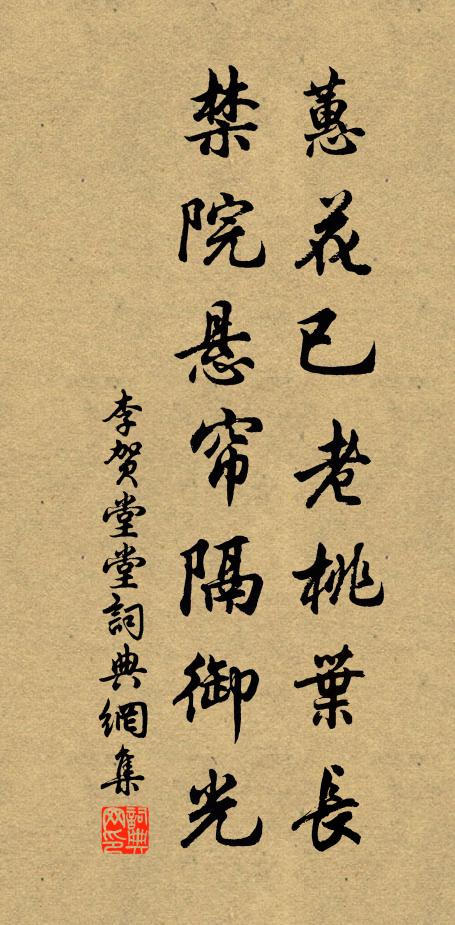 蕙花已老桃葉長
禁院悬帘隔御光
李贺堂堂詞典網集
詞典网印